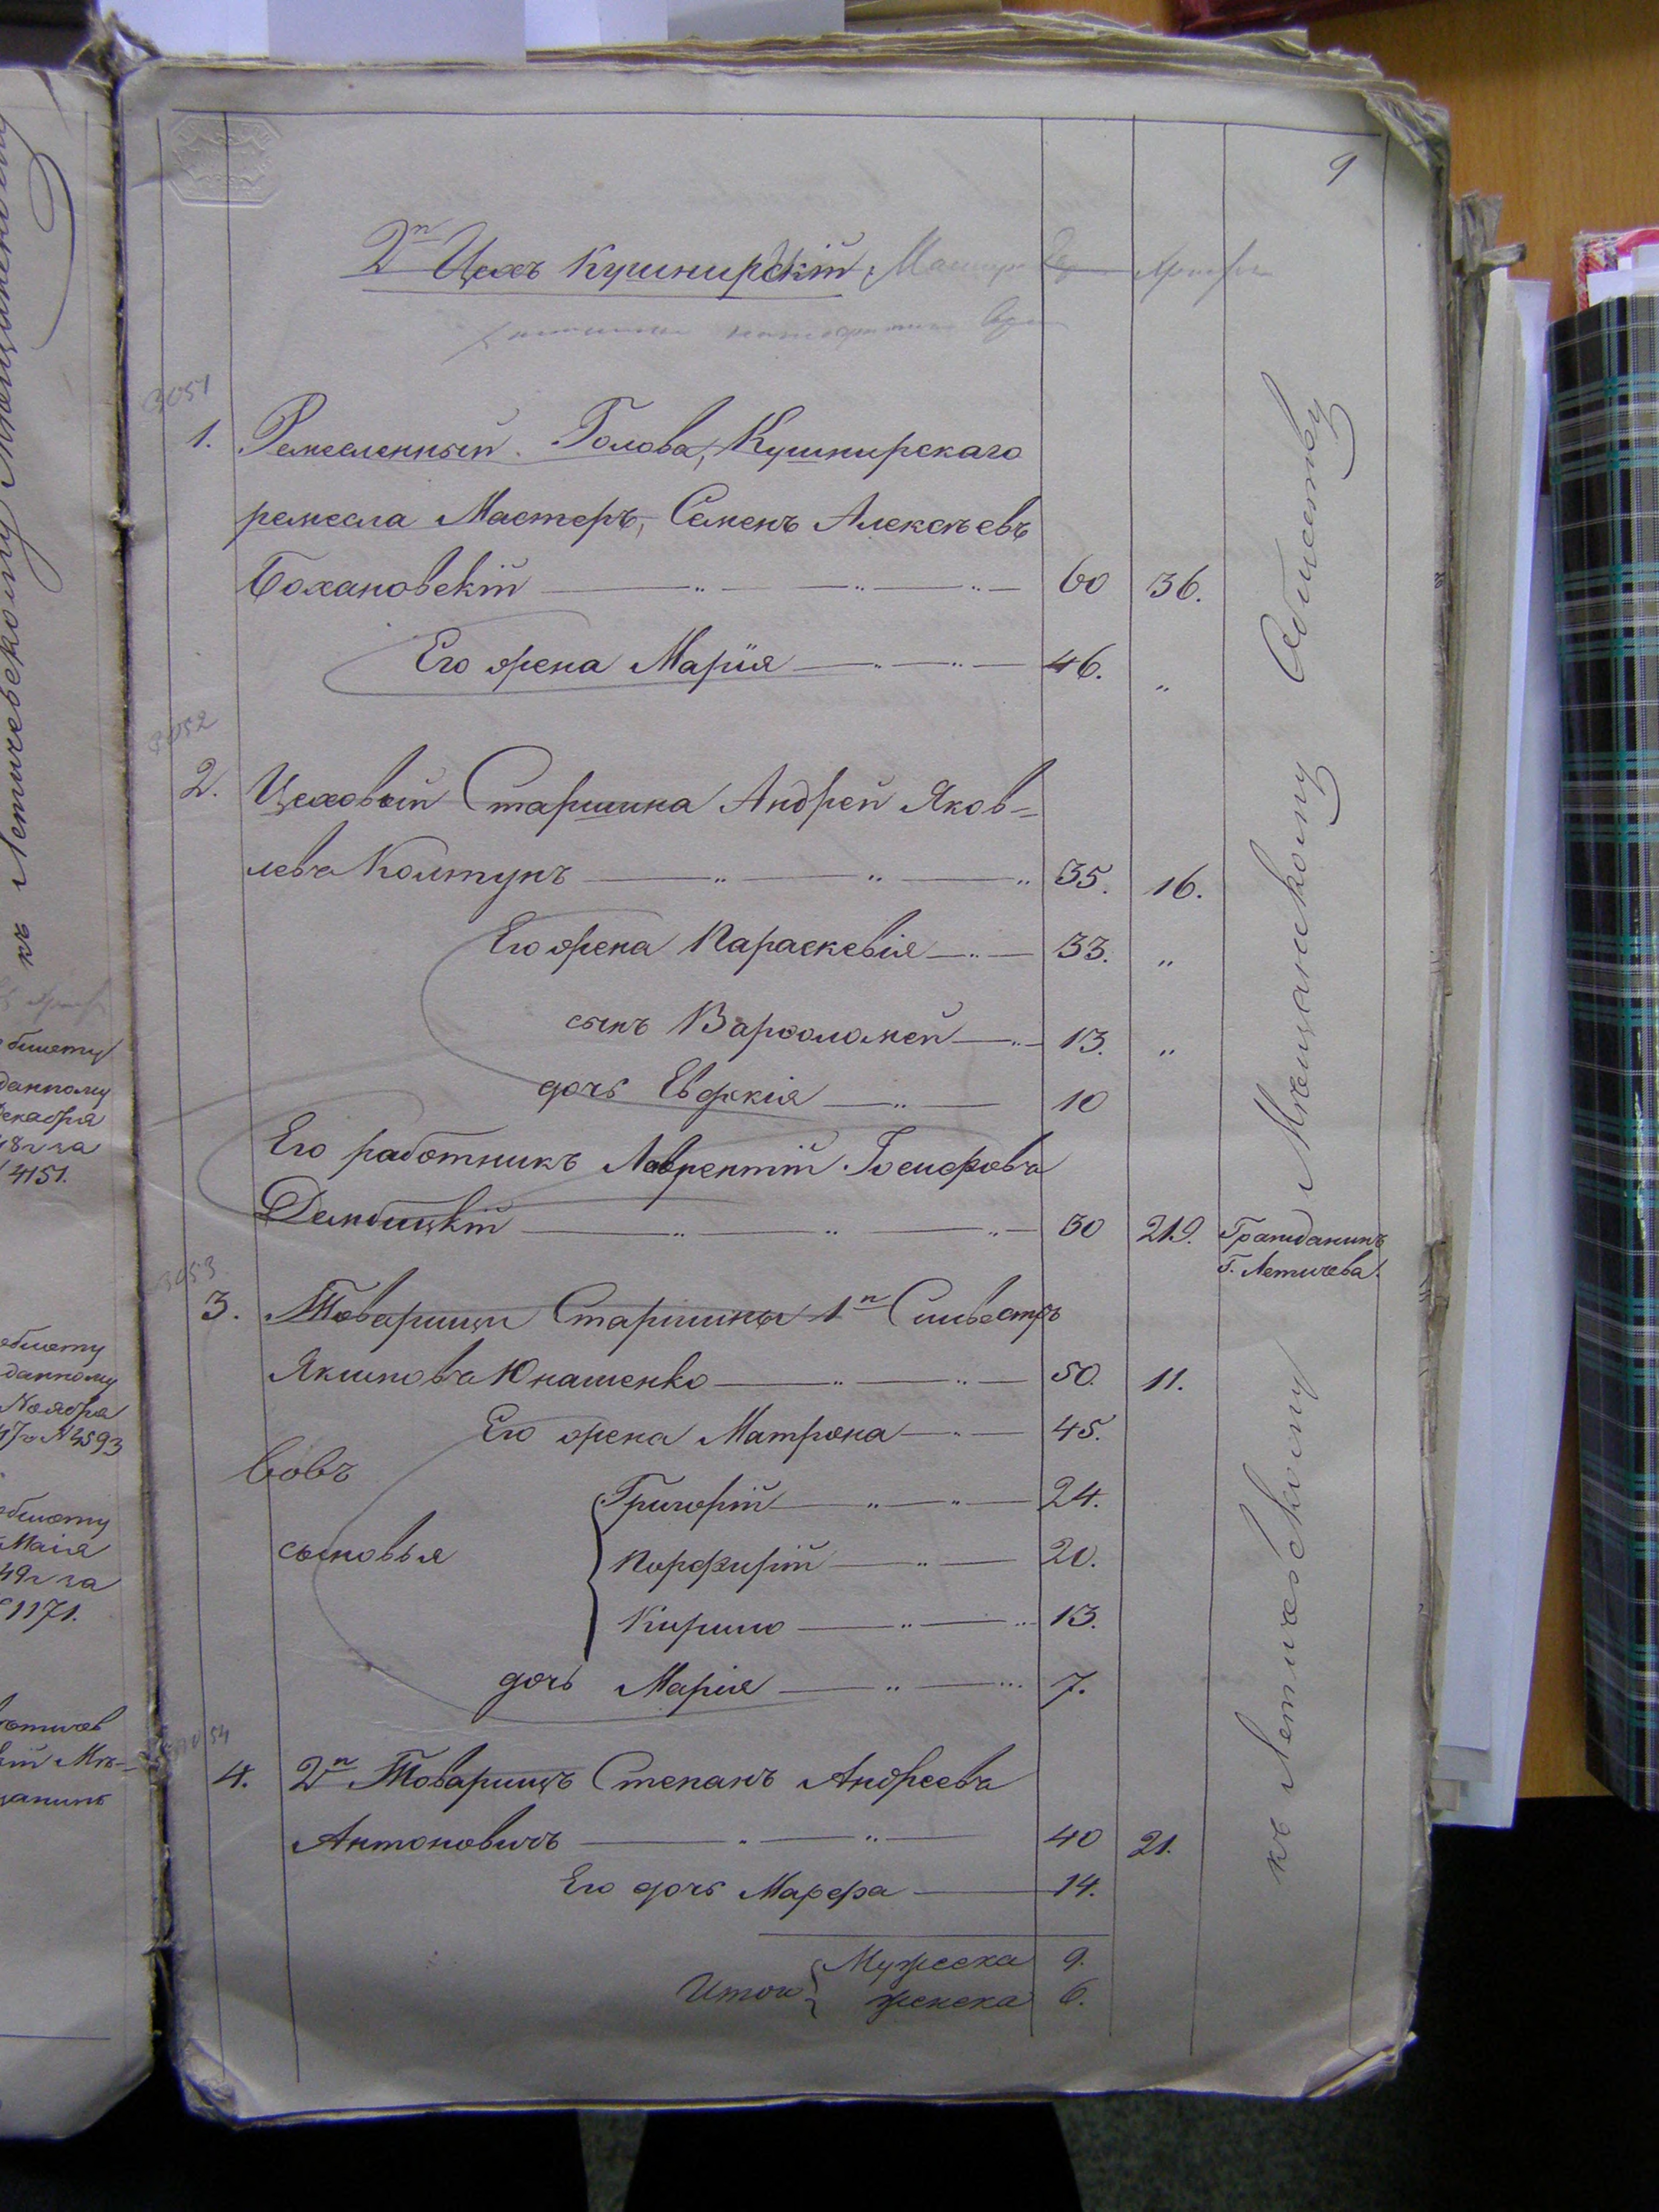 9
2й Цехъ Кушнирскій
3051
1. Ремесленный Голова, Кушнирскаго
ремесла Мастеръ, Семенъ Алексѣевъ
Бохановскій 60 36.
Его жена Марія 46. „
3052
2. Цеховый Старшина Андрей Яков=
левъ Колтунъ 35. 16.
Его жена Параскевія 33. „
сынъ Варфоломей 13. „
дочь Евфкія 10
Его работникъ Лаврентій Іосифовъ
Дембицкій 30 219. Гражданинъ
Г. Летичева.
3053
3. Товарищи Старшины 1й Сильвестръ
Якимовъ Юнашенко 50. 11.
Его жена Матрона 45.
вовъ
Григорій 24.
сыновья Порфирій 20.
Кирило 13.
дочь Марія 7.
3054
4. 2й Товарищъ Степанъ Андреевъ
Антоновичъ 40 21.
Его дочь Марфа 14.
Мужеска 9.
Итого женска 6.
къ Летичевскому Мѣщанскому Обществу
къ Летичевскому Мѣщанскому
данному
Декабря
4151.
данному
Ноября
4593
Маія
49г за
1171.